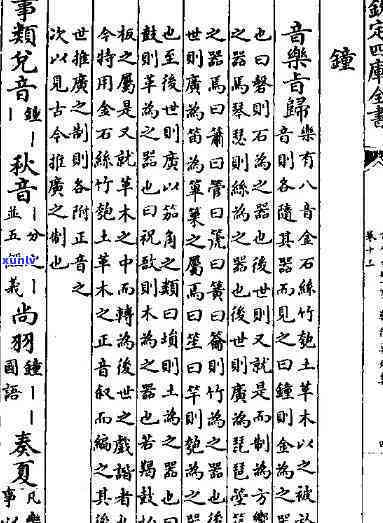 欽定四庫全書
卷十三
鐘
音樂㫖歸
樂有八音金石絲竹匏土革木以之被
音則各隨其器而見之曰鐘則金為之
也曰磬則石為之器也後世則又就是而制為方
之器焉琴瑟則絲為之器也後世則廣為琵琶箜
之器焉曰簫曰管曰箎曰簧曰籥則竹為之器也後
世則廣為笛為篳篥之屬焉曰笙曰竽則匏為之器
也至後世則廣以笳角之類曰塤則土為之器也曰
鼓則革為之器也曰柷敔則木為之器也若羯鼓
板之屬是又就革木之中而轉為後世之戲諧者也
今特用金石絲竹匏土革木之正音叙而編之其後
世推廣之制則各附正音之
次以見古今推廣之制也
事類兌音 鐘丨 秋音 丨分丨並五義 尚羽 鐘丨丨國語 奏夏 凡樂事以